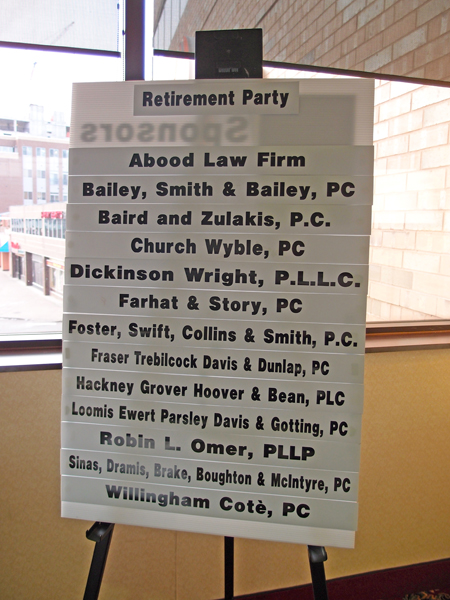 Retirement Party
Sponsors
Abood Law Firm
Bailey, Smith & Bailey, PC
Baird and Zulakis, P.C.
Church Wyble, PC
Dickinson Wright, P.L.L.C.
Farhat & Story, PC
Foster, Swift, Collins & Smith, P.C.
Fraser Trebilcock Davis & Dunlap, PC
Hackney Grover Hoover & Bean, PLC
Loomis Ewert Parsley Davis & Gotting, PC
Robin L. Omer, PLLP
Sinas, Dramis, Brake, Boughton & McIntyre, PC
Willingham Cotè, PC